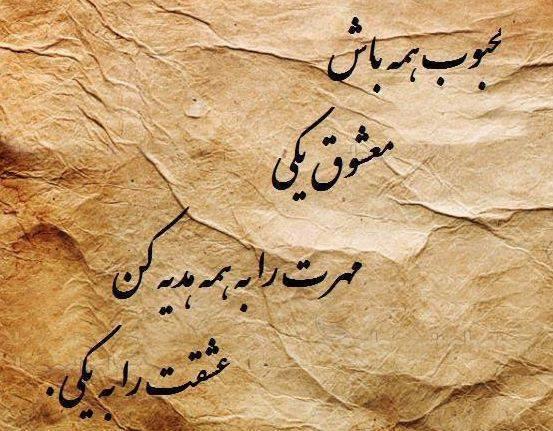 محبوب همه باش
معشوق یکی
مهرت را به همه هدیه کن
عشقت را به یکی.